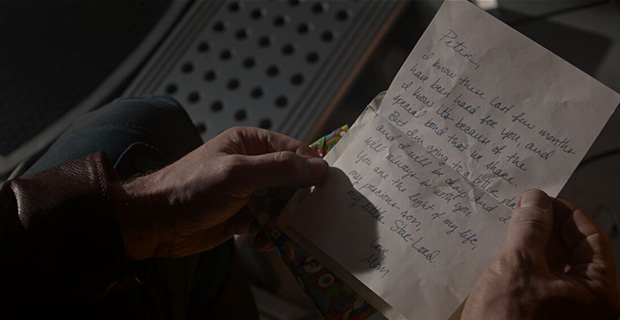 Peter,
I know these last few months
have been hard for you, and
I know it's because of the
special bond that we share
But I'm going to a
and I will be okay and I
will always be with you
You are the light of my life,
my precious son,
my little Star-Lord.
Love
Mom